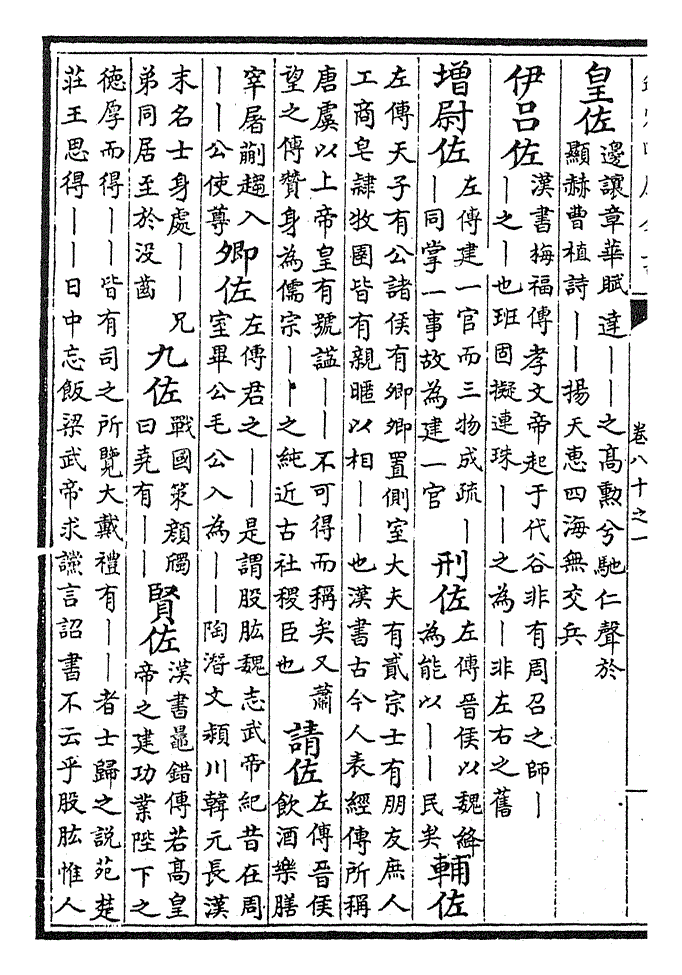 卷八十之一
皇佐
邊讓章華賦達——之高勲兮馳仁聲於
顯赫曹植詩——揚天恵四海無交兵
伊呂佐
漢書梅福傳孝文帝起于代谷非有周召之師—
—之—也班固擬連珠——之為—非左右之舊
增尉佐
左傳建一官而三物成疏—
—同掌一事故為建一官
刑佐
左傳晉侯以魏絳
為能以——民矣
輔佐
左傳天子有公諸侯有卿卿置側室大夫有貳宗士有朋友庶人
工商皂隸牧圉皆有親暱以相——也漢書古今人表經傳所稱
唐虞以上帝皇有號諡——不可得而稱矣又蕭
望之傳贊身為儒宗——之純近古社稷臣也
請佐
左傳晉侯
飲酒樂膳
宰屠蒯趨入
——公使尊
卿佐
左傳君之——是謂股肱魏志武帝紀昔在周
室畢公毛公入為——陶潛文潁川韓元長漢
末名士身處——兄
弟同居至於没齒
九佐
戰國策顔斶
曰堯有——
賢佐
漢書鼂錯傳若髙皇
帝之建功業陛下之
德厚而得——皆有司之所覽大戴禮有——者士歸之說苑楚
莊王思得——日中忘飯梁武帝求讜言詔書不云乎股肱惟人